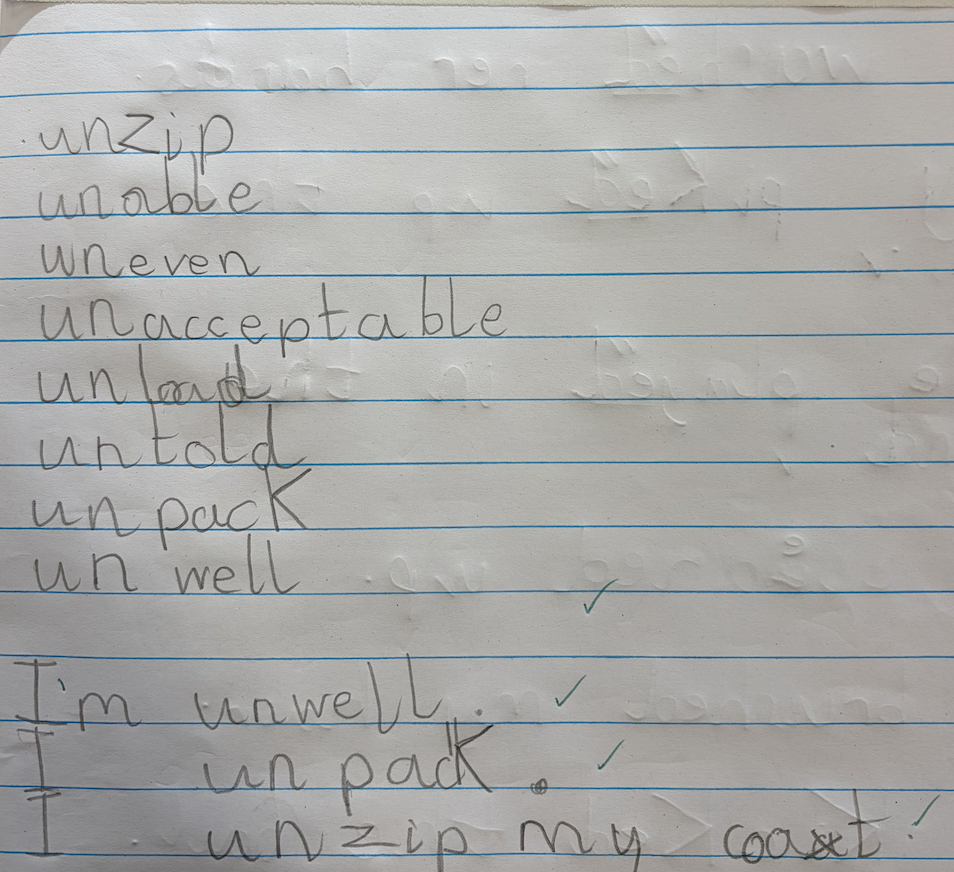 unzip
unable
uneven
unacceptable
unload
untold
un pack
un well
I'm unwell.
I un pack.
I unzip my coat.